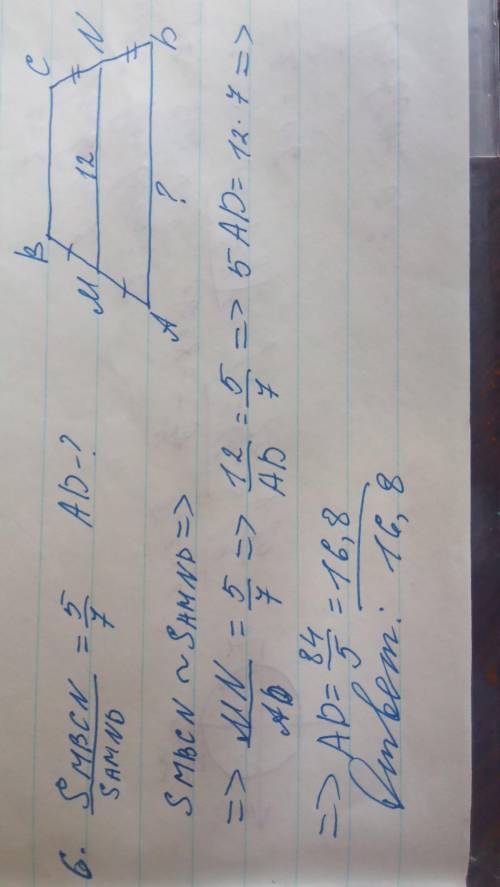 6. S MBCN / S AMND = 5/7   AD-?
B C
M 12 N
A ? D
S MBCN ~ S AMND =>
=> MN/AD = 5/7 => 12/AD = 5/7 => 5AD = 12·7 =>
=> AD = 84/5 = 16,8
Ответ: 16,8